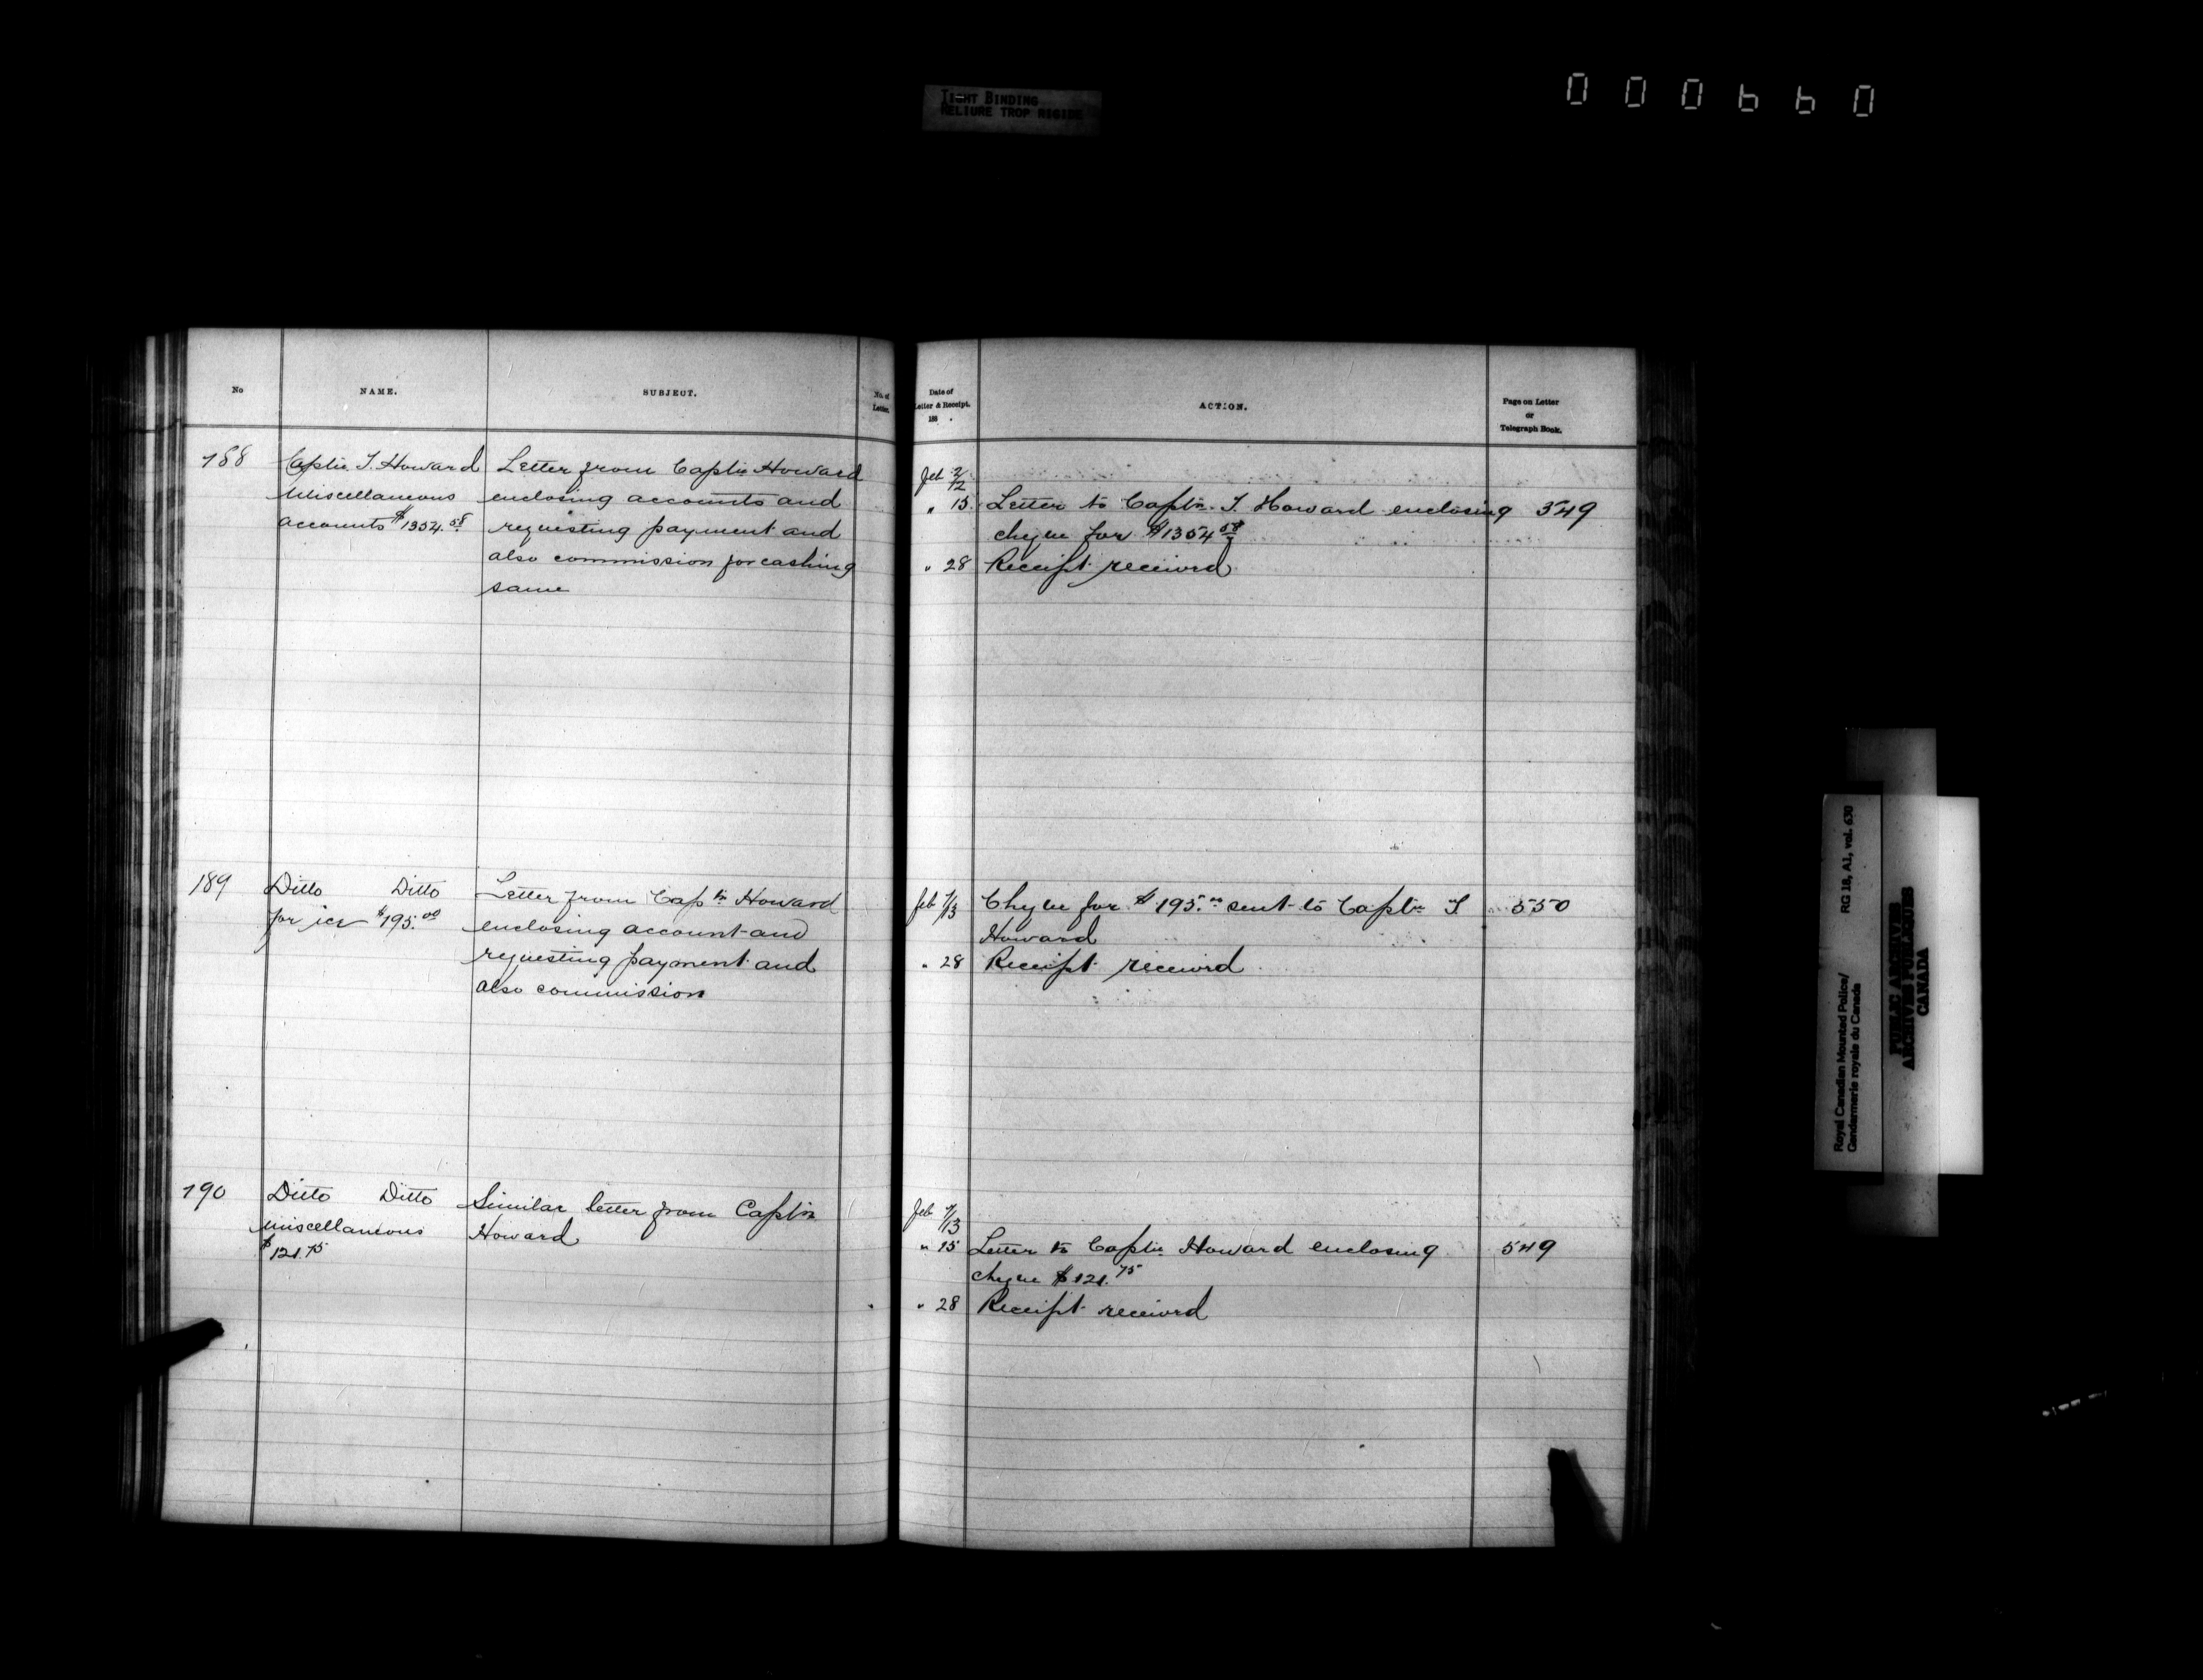 TIGHT BINDING
RELIURE TROP RIGIDE
000660
No
NAME.
SUBJECT.
No. of
Letter.
188
Captn. T. Howard
Miscellaneous
accounts $1354.58
Letter from Captn Howard
enclosing accounts and
requesting payment and
also commission for cashing
same
189
Ditto Ditto
for ice $195.00
Letter from Captn Howard
enclosing account and
requesting payment and
also commission
190
Ditto Ditto
Miscellaneous
$121.75
Similar letter from Captn
Howard
Date of
Letter & Receipt.
188 .
ACTION.
Page on Letter
or
Telegraph Book.
Feb 2/12
" 15 Letter to Captn. T. Howard enclosing 549
cheque for $1354.58
" 28 Receipt received
Feb 7/13 Cheque for $195.00 sent to Captn T 550
Howard
" 28 Receipt received
Feb 7/13
" 15 Letter to Captn Howard enclosing 549
cheque $121.75
" 28 Receipt received
Royal Canadian Mounted Police/ RG 18, A1, vol. 630
Gendarmerie royale du Canada
PUBLIC ARCHIVES
ARCHIVES PUBLIQUES
CANADA